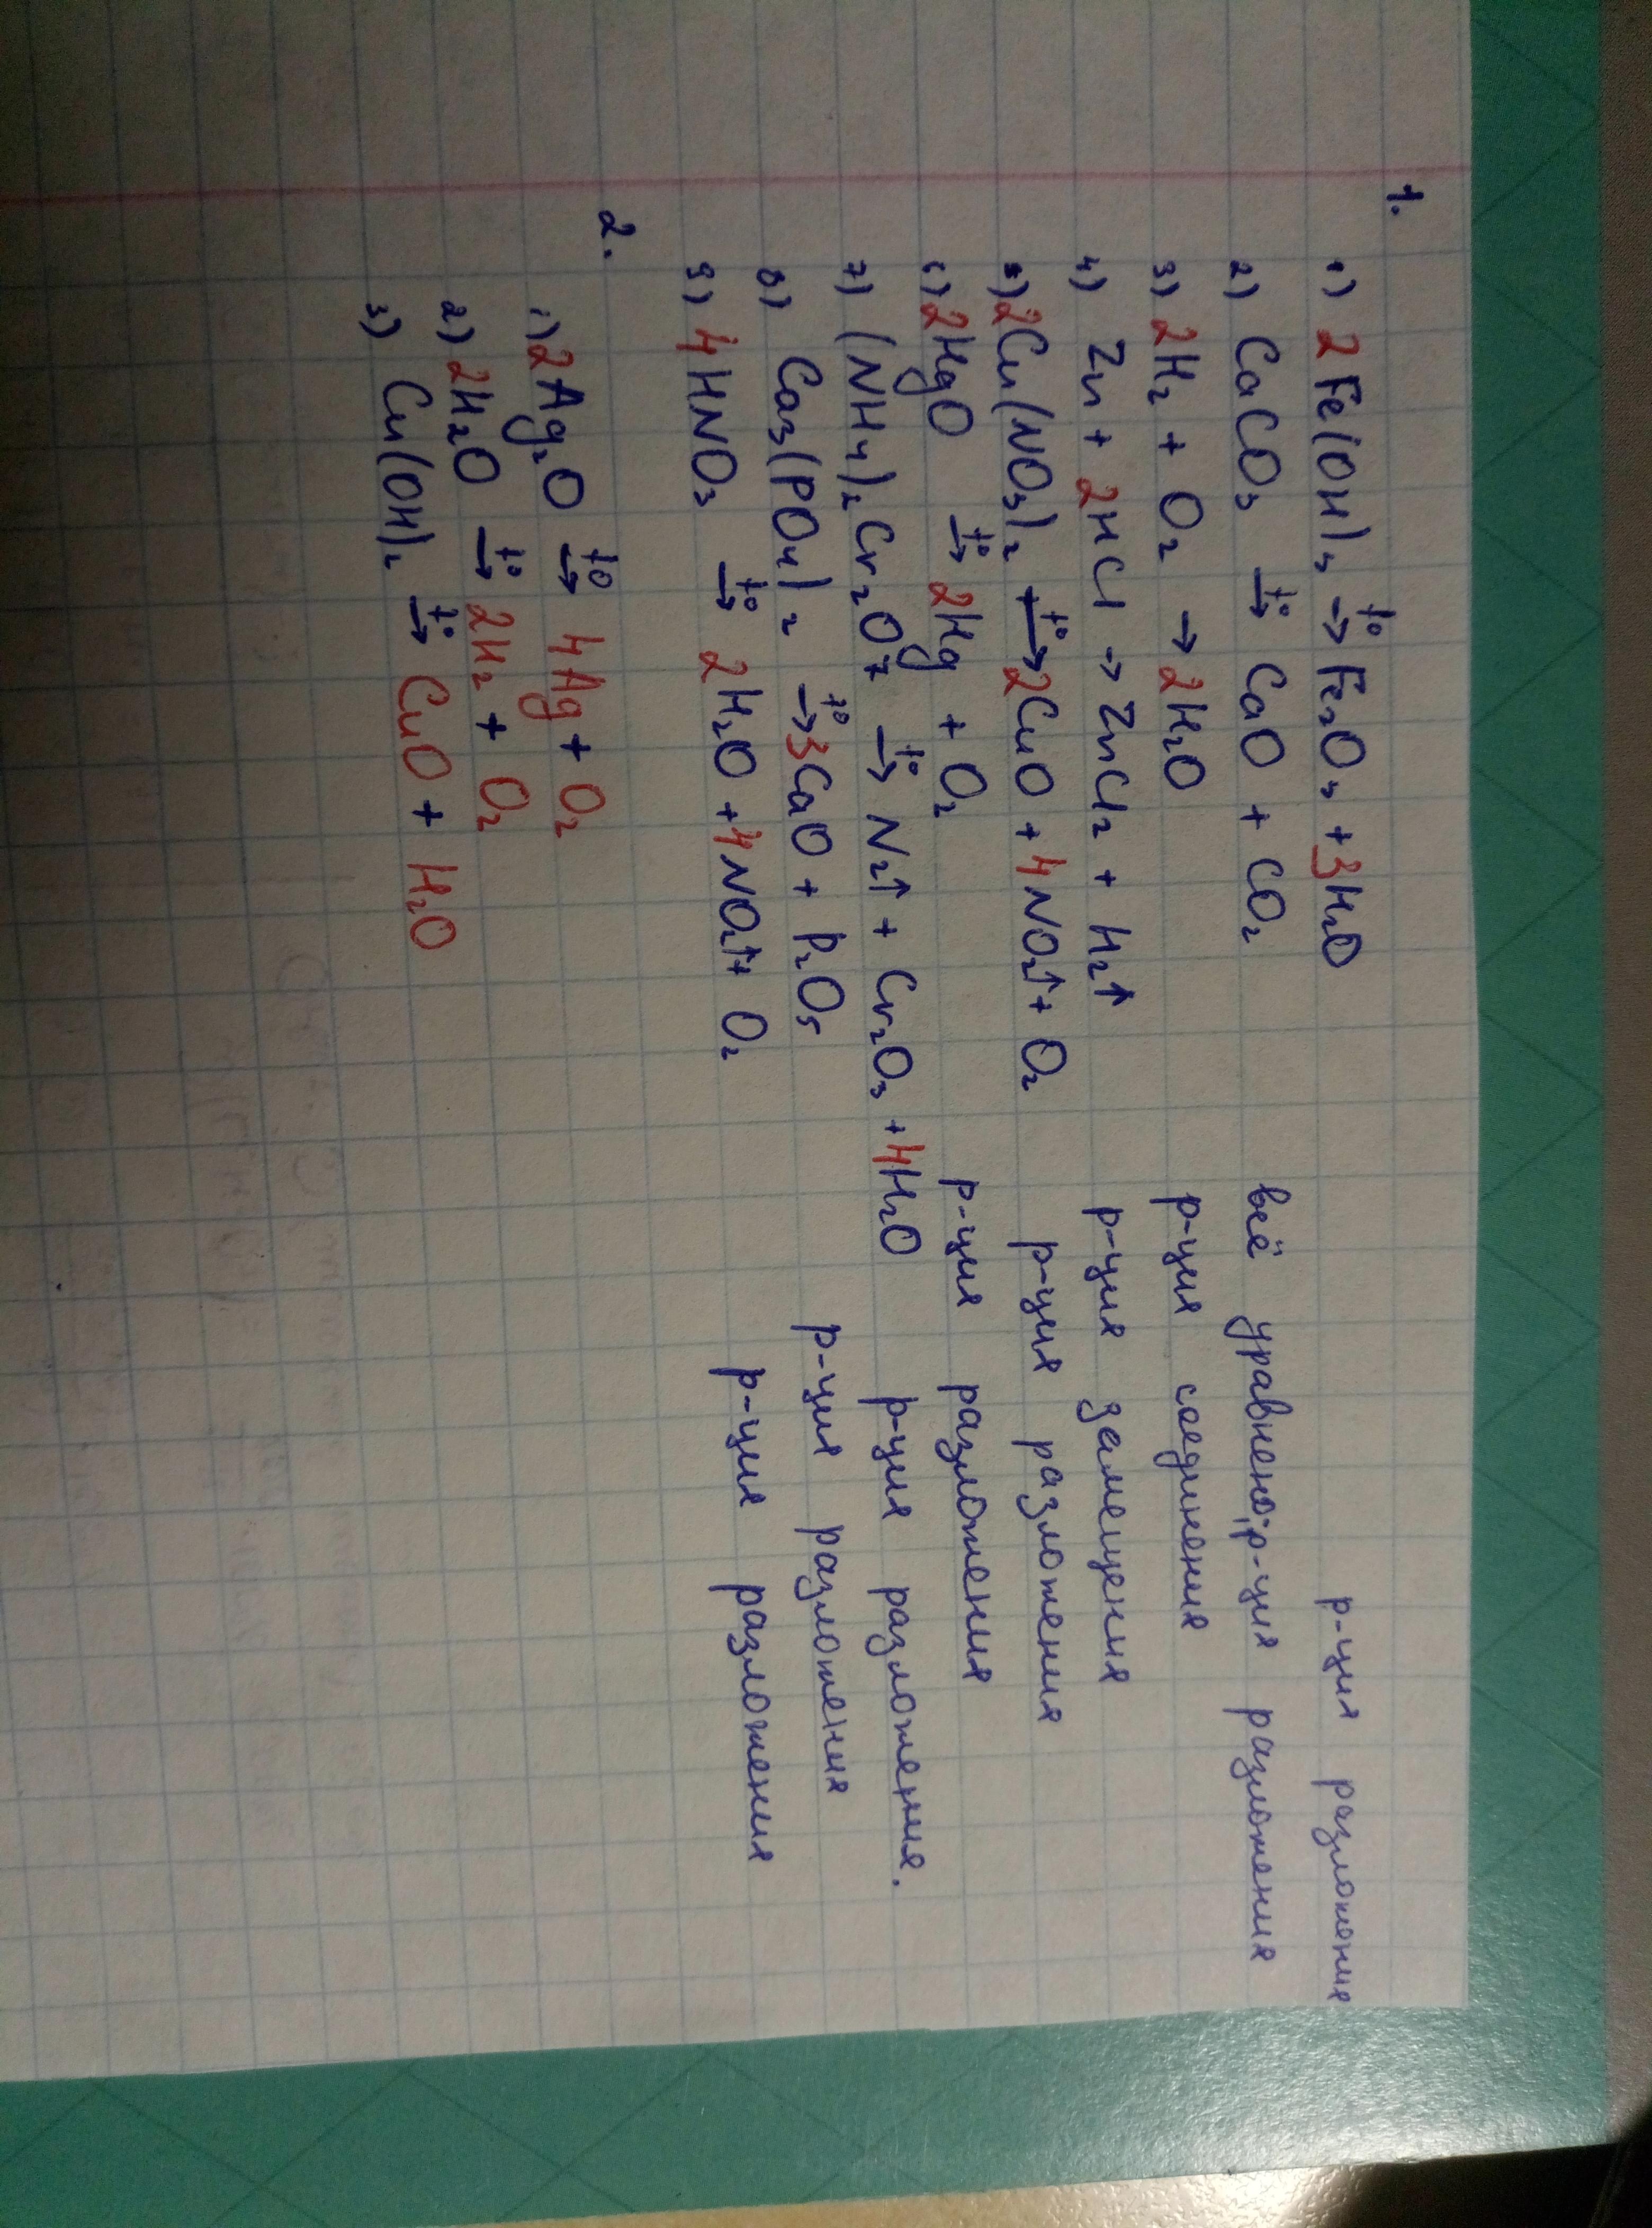 1.
1) 2Fe(OH)₃ →t° Fe₂O₃ + 3H₂O р-ция разложения
2) CaCO₃ →t° CaO + CO₂ всё уравнено; р-ция разложения
3) 2H₂ + O₂ → 2H₂O р-ция соединения
4) Zn + 2HCl → ZnCl₂ + H₂↑ р-ция замещения
5) 2Cu(NO₃)₂ →t° 2CuO + 4NO₂↑ + O₂ р-ция разложения
6) 2HgO →t° 2Hg + O₂ р-ция разложения
7) (NH₄)₂Cr₂O₇ →t° N₂↑ + Cr₂O₃ + 4H₂O р-ция разложения.
8) Ca₃(PO₄)₂ →t° 3CaO + P₂O₅ р-ция разложения
9) 4HNO₃ →t° 2H₂O + 4NO₂↑ + O₂ р-ция разложения
2.
1) 2Ag₂O →t° 4Ag + O₂
2) 2H₂O →t° 2H₂ + O₂
3) Cu(OH)₂ →t° CuO + H₂O